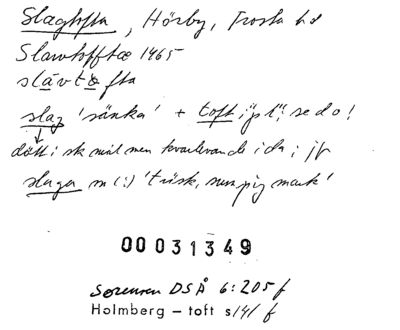 Slagtofta, Hörby, Frosta hd
Slawtofftæ 1465
slàvtòfta
slag 'sänka' + toft i "pl"; se do!
dött i sk mål men kvarlevande i da; jfr
slaga m (:) 'träsk, sumpig mark'
00031349
Sørensen DSÅ 6:205 f
Holmberg – toft s 141 f